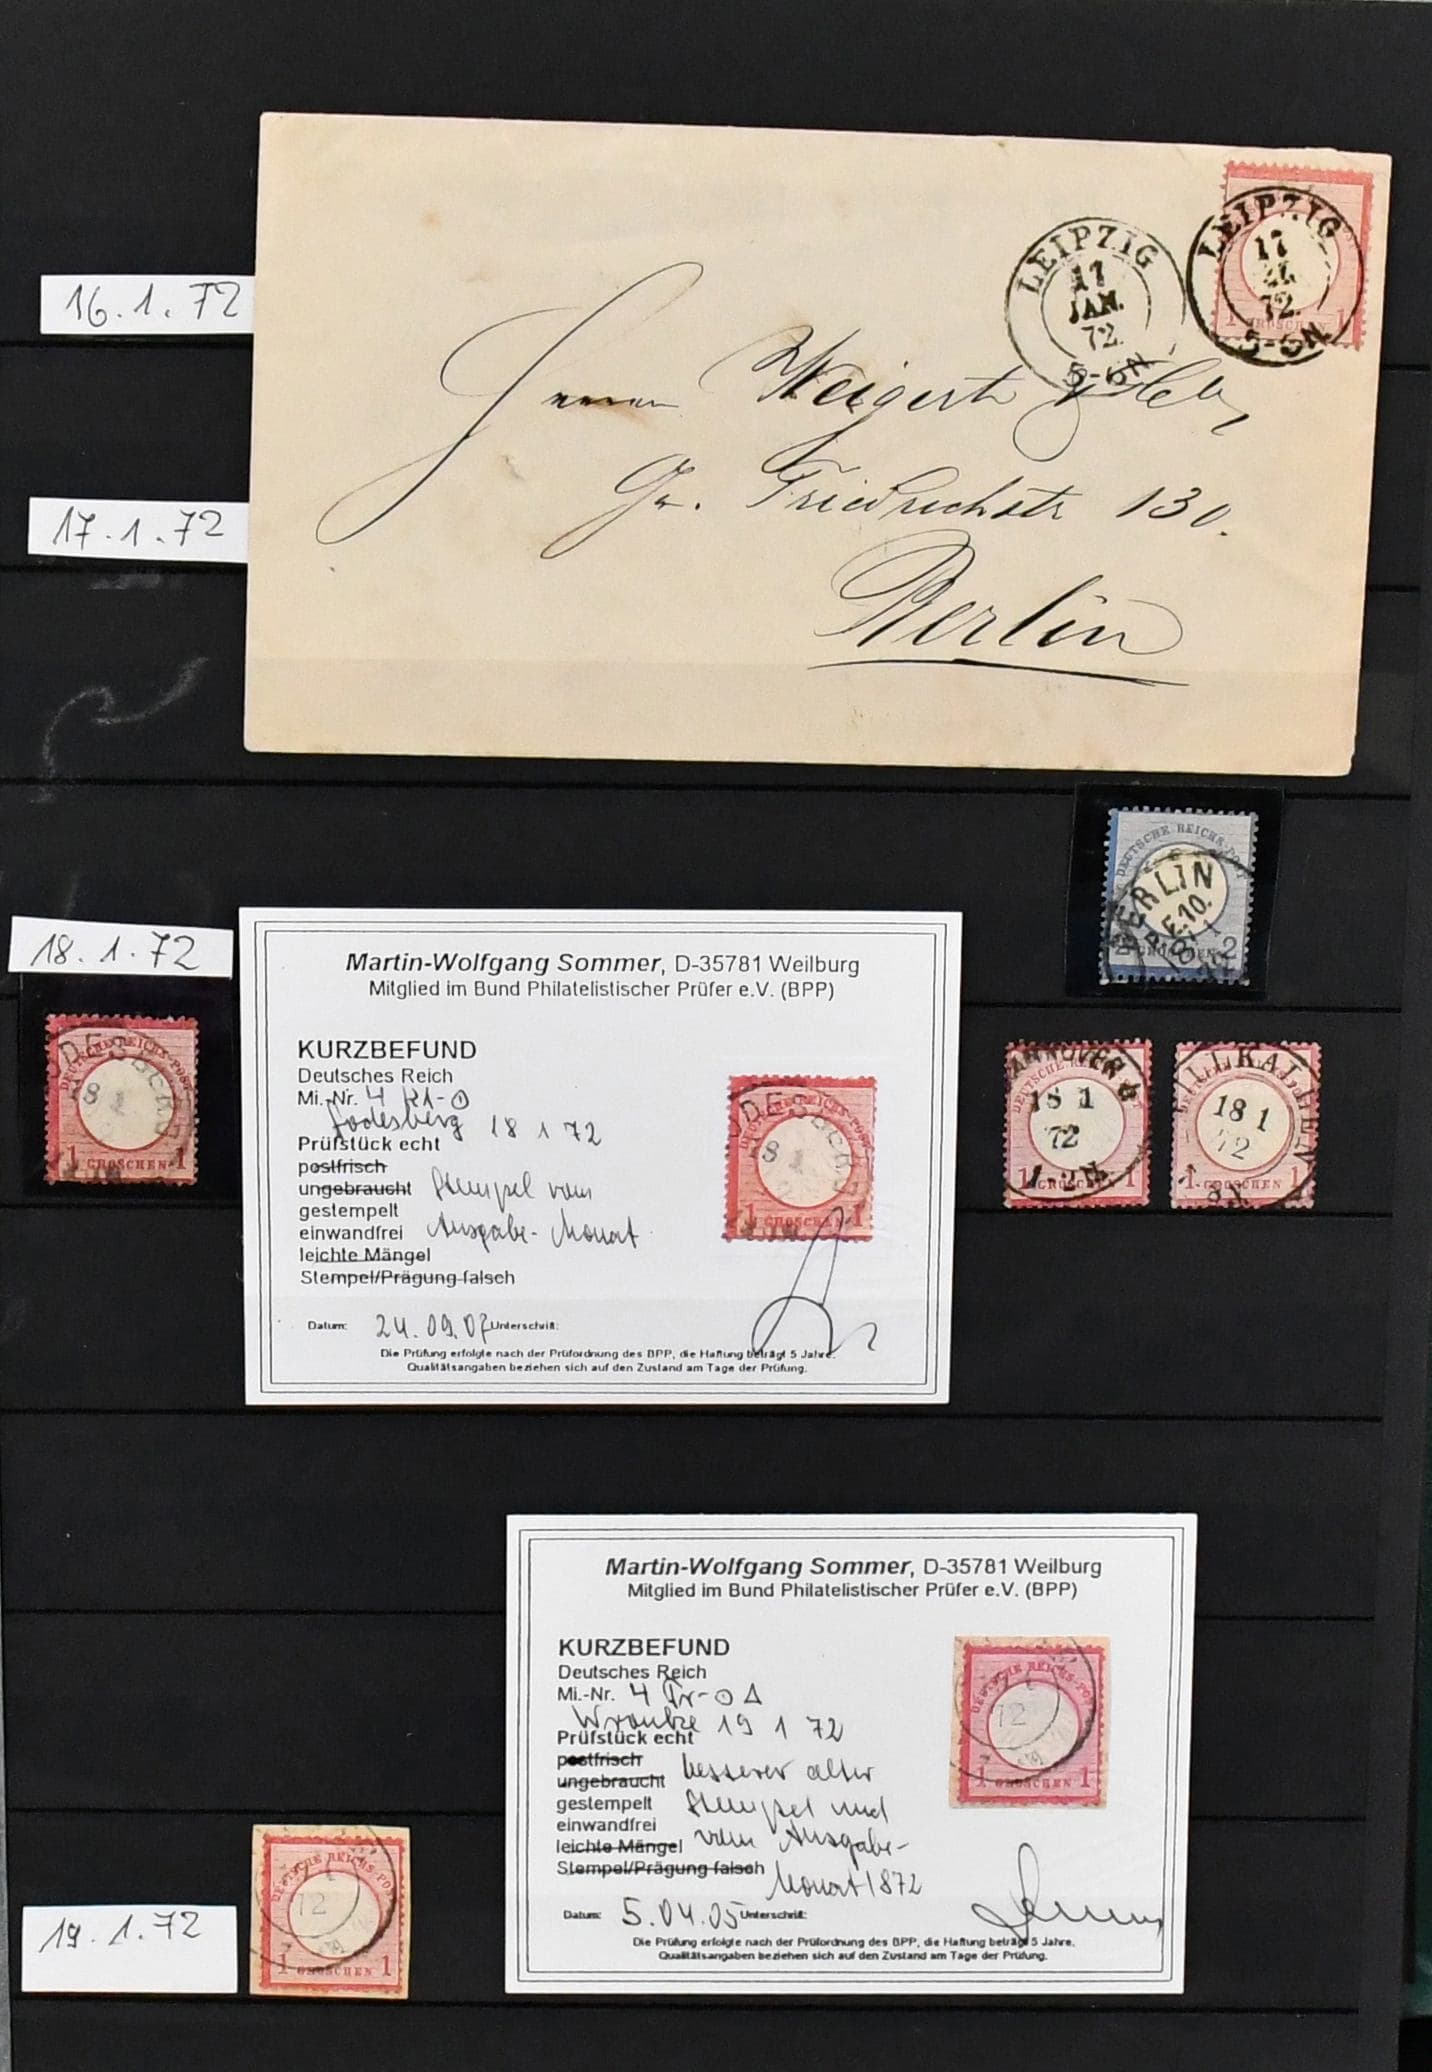 16.1.72
LEIPZIG
17
JAN.
72.
5-6N
LEIPZIG
17
72.
5-6N
1 GROSCHEN 1
Herren Weigert
Gr. Friedrichstr 130.
Berlin
17.1.72
DEUTSCHE REICHS-POST
BERLIN
18 1
2 GROSCHEN 2
18.1.72
DEUTSCHE REICHS-POST
18 1
1 GROSCHEN 1
Martin-Wolfgang Sommer, D-35781 Weilburg
Mitglied im Bund Philatelistischer Prüfer e.V. (BPP)
KURZBEFUND
Deutsches Reich
Mi.-Nr. 4
Godesberg 18 1 72
Prüfstück echt
postfrisch
ungebraucht Stempel vom
gestempelt
einwandfrei Ausgabe-Monat
leichte Mängel
Stempel/Prägung falsch
Datum: 24.09.07 Unterschrift:
Die Prüfung erfolgte nach der Prüfordnung des BPP, die Haftung beträgt 5 Jahre.
Qualitätsangaben beziehen sich auf den Zustand am Tage der Prüfung.
1 GROSCHEN 1
HANNOVER
18 1
72
1-2N
1 GROSCHEN 1
PILLKALLEN
18 1
72
1 GROSCHEN 1
Martin-Wolfgang Sommer, D-35781 Weilburg
Mitglied im Bund Philatelistischer Prüfer e.V. (BPP)
KURZBEFUND
Deutsches Reich
Mi.-Nr. 4
Wronke 19 1 72
Prüfstück echt
postfrisch besserer alter
ungebraucht
gestempelt Stempel und
einwandfrei vom Ausgabe-
leichte Mängel
Stempel/Prägung falsch Monat 1872
Datum: 5.04.05 Unterschrift:
Die Prüfung erfolgte nach der Prüfordnung des BPP, die Haftung beträgt 5 Jahre.
Qualitätsangaben beziehen sich auf den Zustand am Tage der Prüfung.
DEUTSCHE REICHS-POST
72
1 GROSCHEN 1
19.1.72
DEUTSCHE REICHS-POST
72
1 GROSCHEN 1